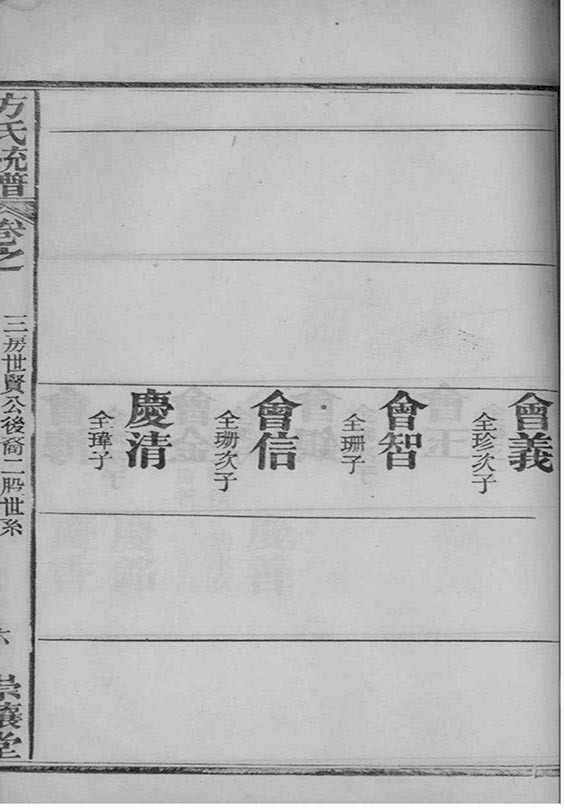 會義
全珍次子
會智
全珊子
會信
全珊次子
慶清
全瑋子
方氏統譜
卷之
三房世賢公後裔二股世系
六
堂